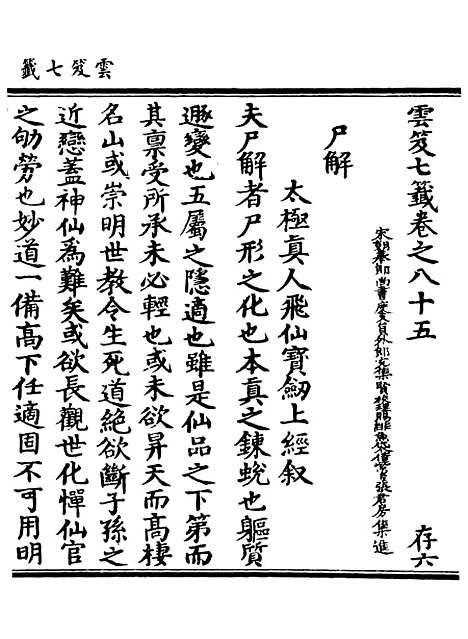 雲笈七籤
雲笈七籤卷之八十五　存六
宋朝奉郎尚書度支員外郎充集賢校理賜緋魚袋借紫臣張君房集進
尸解
太極真人飛仙寶劒上經叙
夫尸解者尸形之化也本真之鍊蛻也軀質
遯變也五屬之隱適也雖是仙品之下第而
其禀受所承未必輕也或未欲昇天而髙棲
名山或崇明世教令生死道絶欲斷子孫之
近戀蓋神仙爲難矣或欲長觀世化憚仙官
之劬勞也妙道一備髙下任適固不可用明